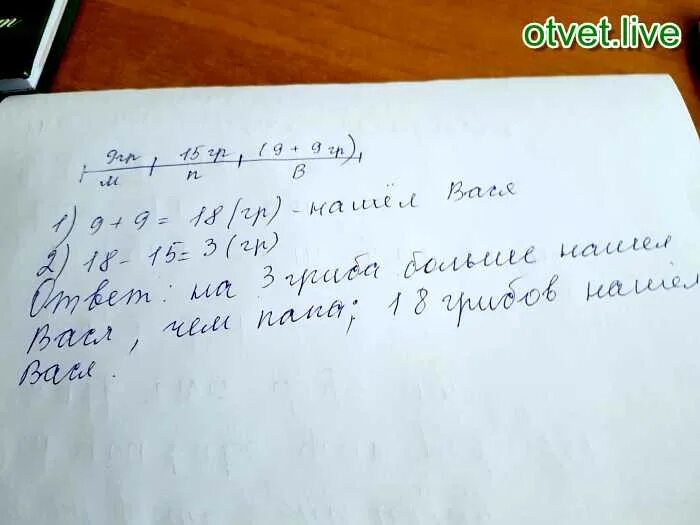 otvet.live
9гр 15гр (9+9гр)
м п В
1) 9+9= 18 (гр) - нашёл Вася
2) 18 - 15 = 3 (гр)
Ответ: на 3 гриба больше нашел
Вася, чем папа; 18 грибов нашёл
Вася.